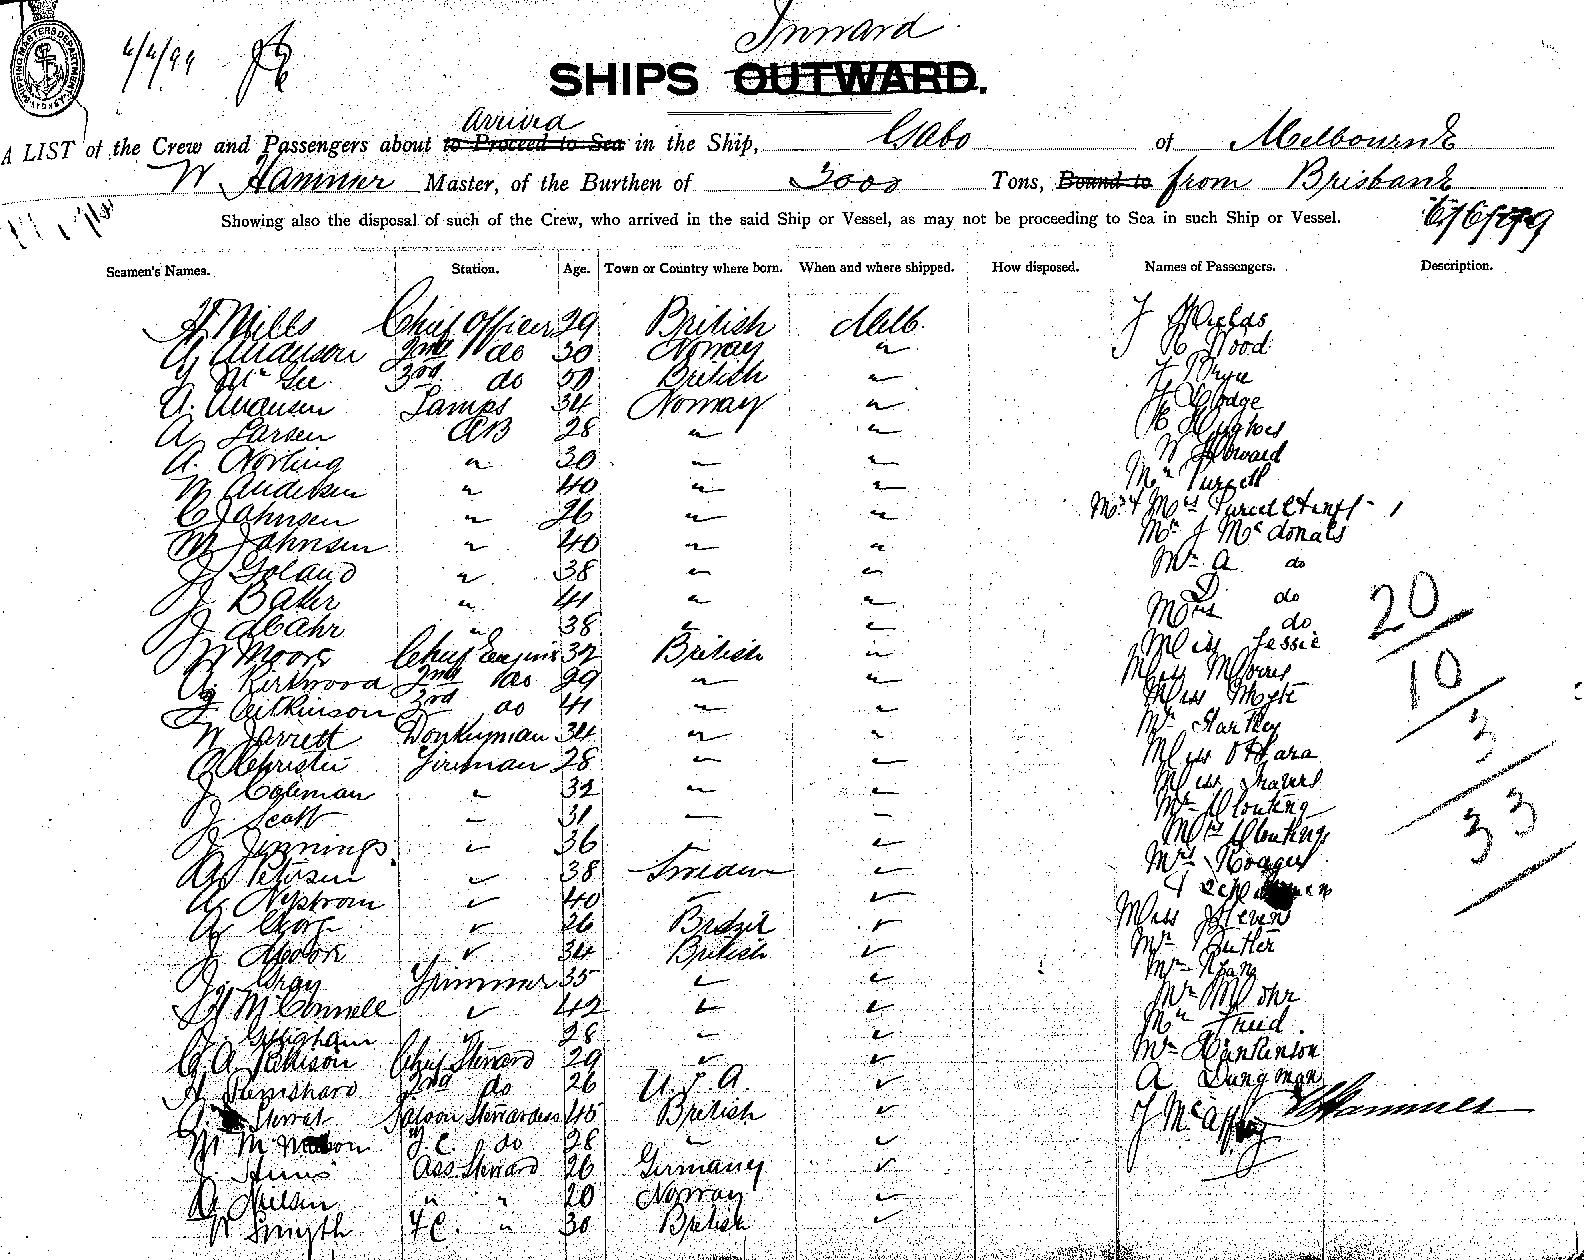 Inward
4/4/99
SHIPS OUTWARD.
arrived
A LIST of the Crew and Passengers about to Proceed to Sea in the Ship, Gabo of Melbourne
W Hammer Master, of the Burthen of 3000 Tons, Bound to from Brisbane
Showing also the disposal of such of the Crew, who arrived in the said Ship or Vessel, as may not be proceeding to Sea in such Ship or Vessel.
Seamen's Names. Station. Age. Town or Country where born. When and where shipped. How disposed. Names of Passengers. Description.
H Mills Chief Officer 29 British Melb. J Fields
A Anderson 2nd do 30 Norway " R Wood
J McGee 3rd do 50 British " J Bryce
A. Andersen Lamps 34 Norway " J Dodge
A Larsen AB 28 " " E Hughes
A. Norling " 30 " " W Howard
W Andersen " 40 " " Mr Purcell
C Johnsen " 26 " " Mr & Mrs Purcell & Inft - 1
M Johnsen " 40 " " Mr J McDonald
J Goland " 38 " " Mr A do
J Baker " 41 " " D do
J McCahr " 38 " " Mrs do
W Moore Chief Engine 32 British " Miss Jessie
A Kirkwood 2nd do 29 " " Miss Morris
J Aitkinson 3rd do 41 " " Miss Moyle
W Jarrett Donkeyman 34 " " Mr Hartley
C Christie Fireman 28 " " Miss O'Hara
J Coleman " 32 " " Miss Travers
J Scott " 31 " " Mr Clouting
J Jennings " 36 " " Mrs Clouting
A Petersen " 38 Sweden " Mrs Rodgers
A Nystrom " 40 " " & 2 children
A George " 26 Brazil " Miss Stevens
J Moore " 34 British " Mr Butler
J Gray Trimmer 35 " " Mr Ryan
H McConnell " 42 " " Mr Mohr
J Gilligham " 28 " " Mr Freud.
C A Pattison Chief Steward 29 " " Mr Hankinson
H Remshard 2nd do 26 U.S.A. " A Dungman
Stewart Saloon Stewardess 45 British " J McCaffrey
W Hammer
M M Mason F.C. do 28 " "
J. Heins Ass Steward 26 Germany "
A Neilsen " " 20 Norway "
W Smyth F.C. " 30 British "
20
10
3
33